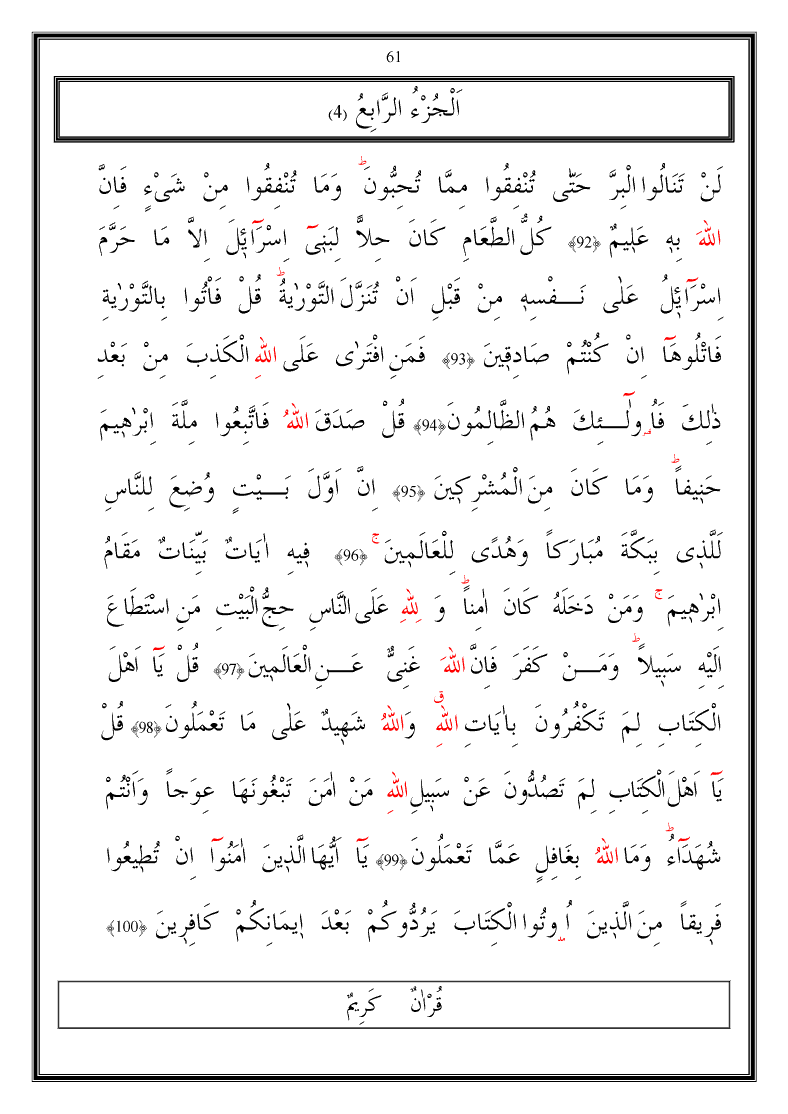 61
اَلْجُزْءُ الرَّابِعُ (4)
لَنْ تَنَالُوا الْبِرَّ حَتّٰى تُنْفِقُوا مِمَّا تُحِبُّونَۜ وَمَا تُنْفِقُوا مِنْ شَىْءٍ فَاِنَّ
اللّٰهَ بِهٖ عَلٖيمٌ ﴿92﴾ كُلُّ الطَّعَامِ كَانَ حِلاًّ لِبَنٖىٓ اِسْرَٓائٖلَ اِلاَّ مَا حَرَّمَ
اِسْرَٓائٖلُ عَلٰى نَـــفْسِهٖ مِنْ قَبْلِ اَنْ تُنَزَّلَ التَّوْرٰيةُؕ قُلْ فَاْتُوا بِالتَّوْرٰيةِ
فَاتْلُوهَٓا اِنْ كُنْتُمْ صَادِقٖينَ ﴿93﴾ فَمَنِ افْتَرٰى عَلَى اللّٰهِ الْكَذِبَ مِنْ بَعْدِ
ذٰلِكَ فَاُولٰٓـــئِكَ هُمُ الظَّالِمُونَ ﴿94﴾ قُلْ صَدَقَ اللّٰهُ فَاتَّبِعُوا مِلَّةَ اِبْرٰهٖيمَ
حَنٖيفاًؕ وَمَا كَانَ مِنَ الْمُشْرِكٖينَ ﴿95﴾ اِنَّ اَوَّلَ بَـــيْتٍ وُضِعَ لِلنَّاسِ
لَلَّذٖى بِبَكَّةَ مُبَارَكاً وَهُدًى لِلْعَالَمٖينَۚ ﴿96﴾ فٖيهِ اٰيَاتٌ بَيِّنَاتٌ مَقَامُ
اِبْرٰهٖيمَۚ وَمَنْ دَخَلَهُ كَانَ اٰمِناًؕ وَ لِلّٰهِ عَلَى النَّاسِ حِجُّ الْبَيْتِ مَنِ اسْتَطَاعَ
اِلَيْهِ سَبٖيلاًؕ وَمَـــنْ كَفَرَ فَاِنَّ اللّٰهَ غَنِىٌّ عَـــنِ الْعَالَمٖينَ ﴿97﴾ قُلْ يَٓا اَهْلَ
الْكِتَابِ لِمَ تَكْفُرُونَ بِاٰيَاتِ اللّٰهِࣗ وَاللّٰهُ شَهٖيدٌ عَلٰى مَا تَعْمَلُونَ ﴿98﴾ قُلْ
يَٓا اَهْلَ الْكِتَابِ لِمَ تَصُدُّونَ عَنْ سَبٖيلِ اللّٰهِ مَنْ اٰمَنَ تَبْغُونَهَا عِوَجاً وَاَنْتُمْ
شُهَدَٓاءُؕ وَمَا اللّٰهُ بِغَافِلٍ عَمَّا تَعْمَلُونَ ﴿99﴾ يَٓا اَيُّهَا الَّذٖينَ اٰمَنُوٓا اِنْ تُطٖيعُوا
فَرٖيقاً مِنَ الَّذٖينَ اُوتُوا الْكِتَابَ يَرُدُّوكُمْ بَعْدَ اٖيمَانِكُمْ كَافِرٖينَ ﴿100﴾
قُرْاٰنٌ كَرٖيمٌ